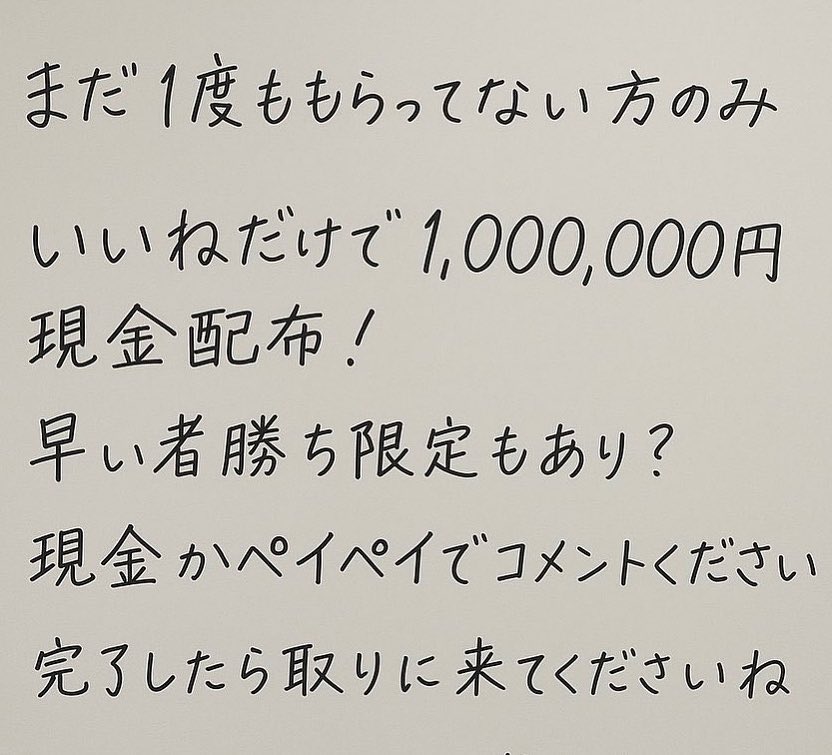 まだ1度ももらってない方のみ
いいねだけで1,000,000円
現金配布!
早い者勝ち限定もあり?
現金かペイペイでコメントください
完了したら取りに来てくださいね